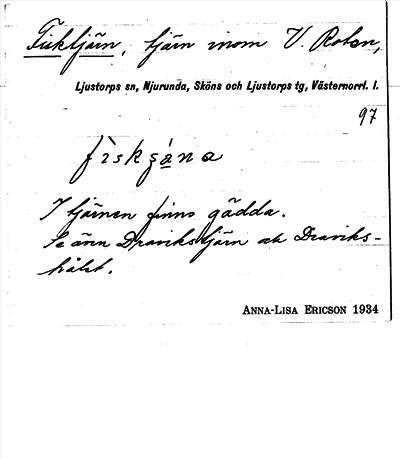 Fisktjärn, tjärn inom V. Roten,
Ljustorps sn, Njurunda, Sköns och Ljustorps tg, Västernorrl. l.
97
fìskʂa̲na
I tjärnen finns gädda.
Se även Dravikstjärn och Draviks-
hålet.
ANNA-LISA ERICSON 1934